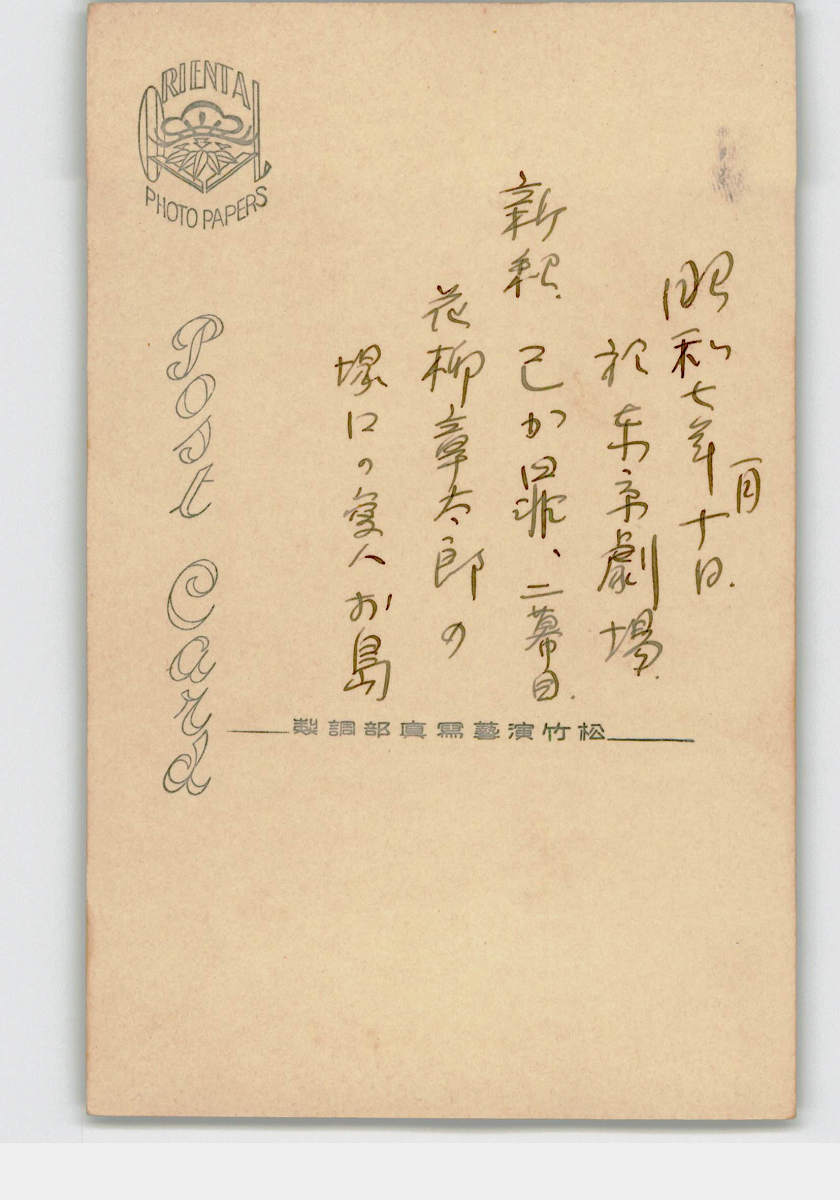 ORIENTAL
PHOTO PAPERS
Post Card
昭和七年一月十日.
於東京劇場.
新釈. 己が罪、二幕目.
花柳章太郎の
塚口の愛人お島
松竹演藝寫真部調製